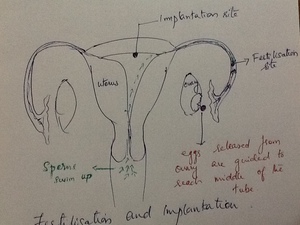 Implantation site
Fertilisation
site
Uterus
ovary
sperms
swim up
eggs released from
ovary are guided to
reach middle of the
tube
Fertilisation and Implantation.